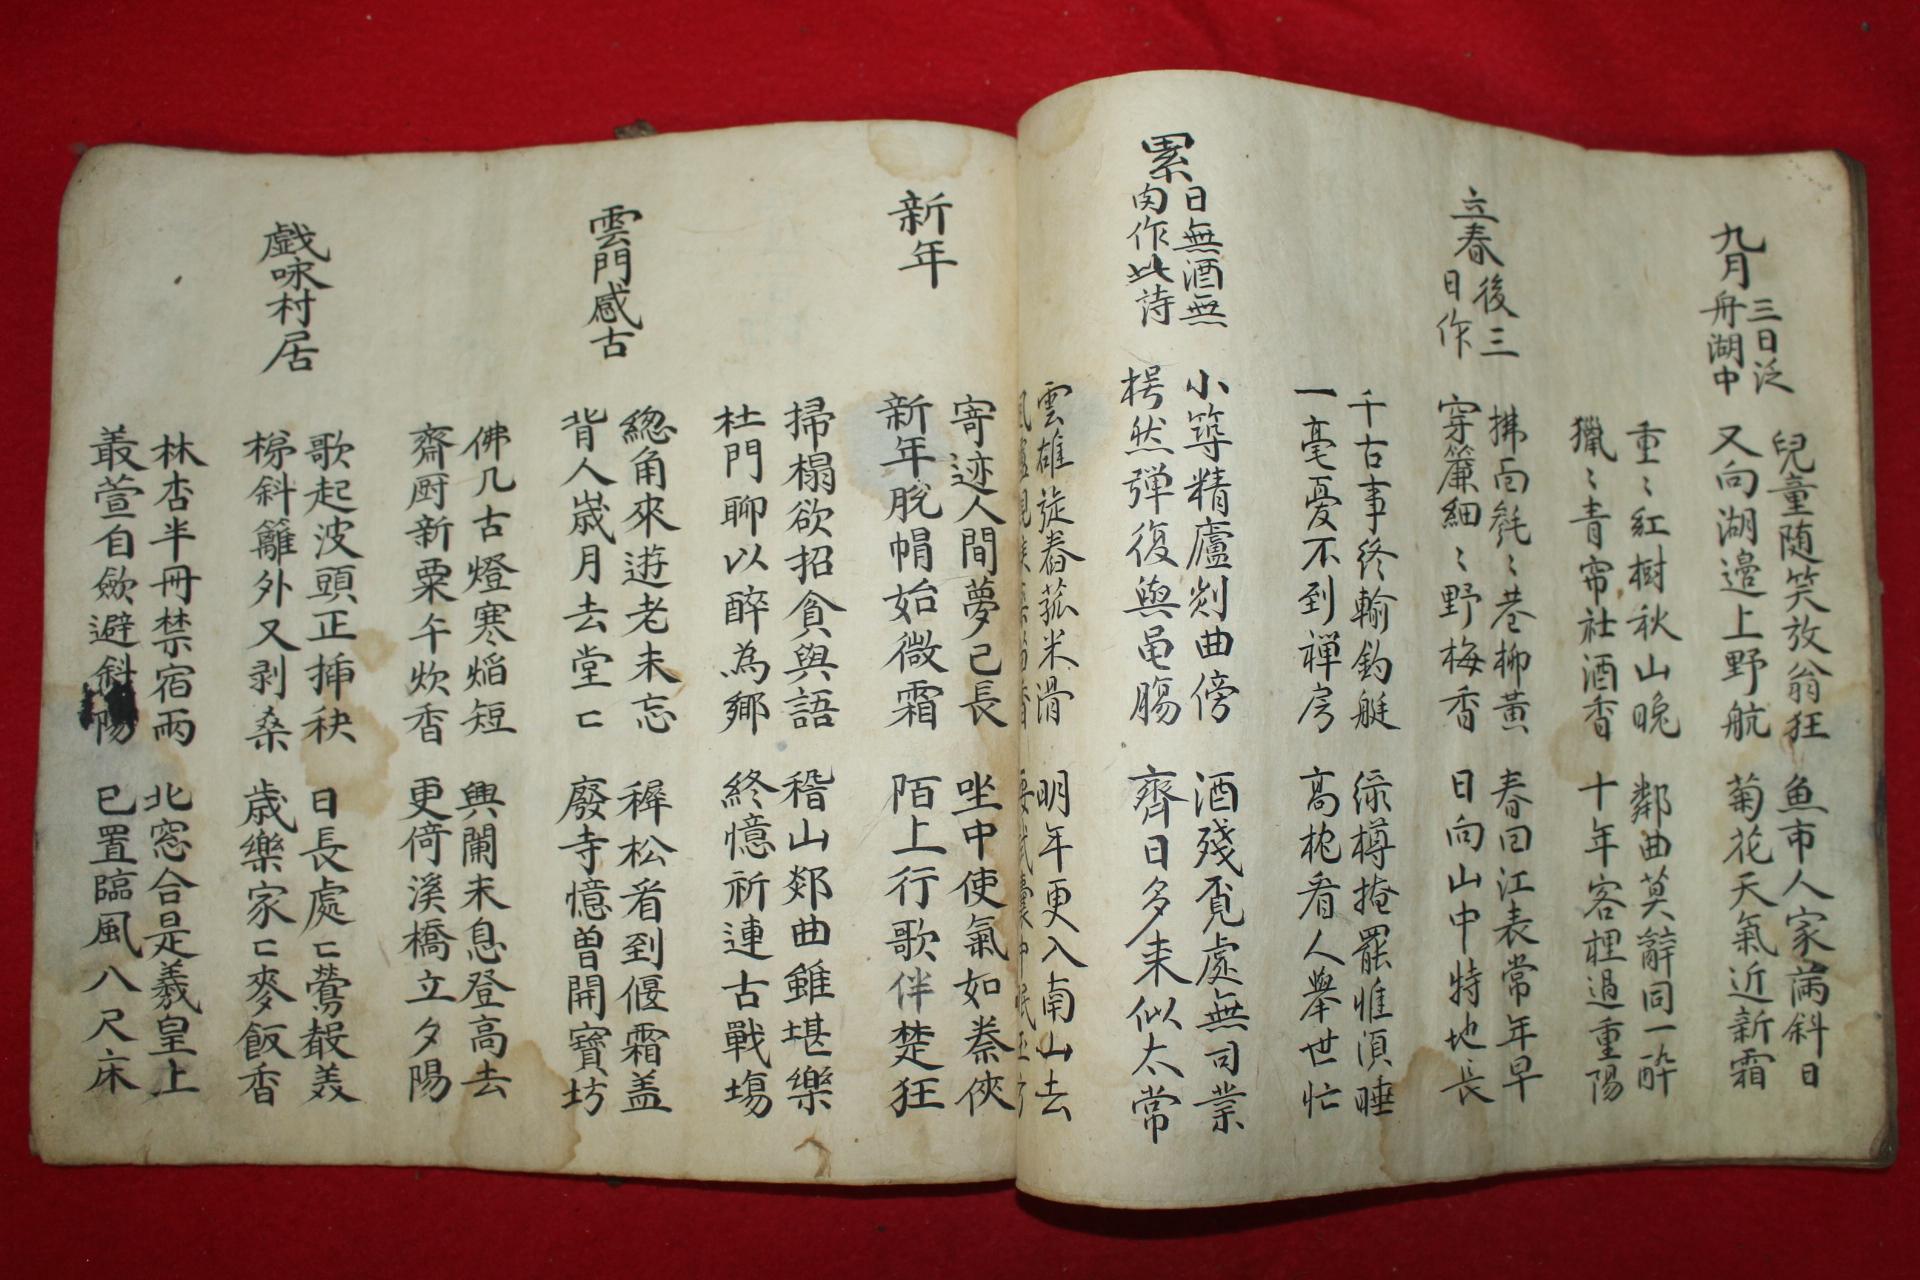 九月三日泛
舟湖中
兒童随笑放翁狂 魚市人家滿斜日
又向湖邉上野航 菊花天氣近新霜
重〻紅樹秋山晚 鄰曲莫辭同一醉
獵〻青帘社酒香 十年客裡過重陽
立春後三
日作
拂面毿〻巷柳黄 春回江表常年早
穿簾細〻野梅香 日向山中特地長
千古事終輸釣艇 綠樽掩罷惟湏睡
一毫憂不到禅房 高枕看人舉世忙
累日無酒無
肉作此詩
小築精廬剡曲傍 酒殘覔處無司業
枵然弹復與黾膓 齊日多来似太常
雲雄旋舂菰米滑 明年更入南山去
新年
寄迹人間夢已長 坐中使氣如秦俠
新年脫帽始微霜 陌上行歌伴楚狂
掃榻欲招貪與語 稽山郯曲雖堪樂
杜門聊以醉為鄉 終憶祈連古戰塲
雲門感古
緫角來遊老未忘 稺松看到偃霜盖
背人歳月去堂匸 廢寺憶曽開寶坊
佛几古燈寒熖短 興闌未息登高去
齋厨新粟午炊香 更倚溪橋立夕陽
戯咏村居
歌起波頭正揷秧 日長處匸鶯聲美
梯斜籬外又剥桑 歳樂家匸麥飯香
林杏半冊禁宿雨 北窓合是羲皇上
叢萱自歛避斜陽 已置臨風八尺床